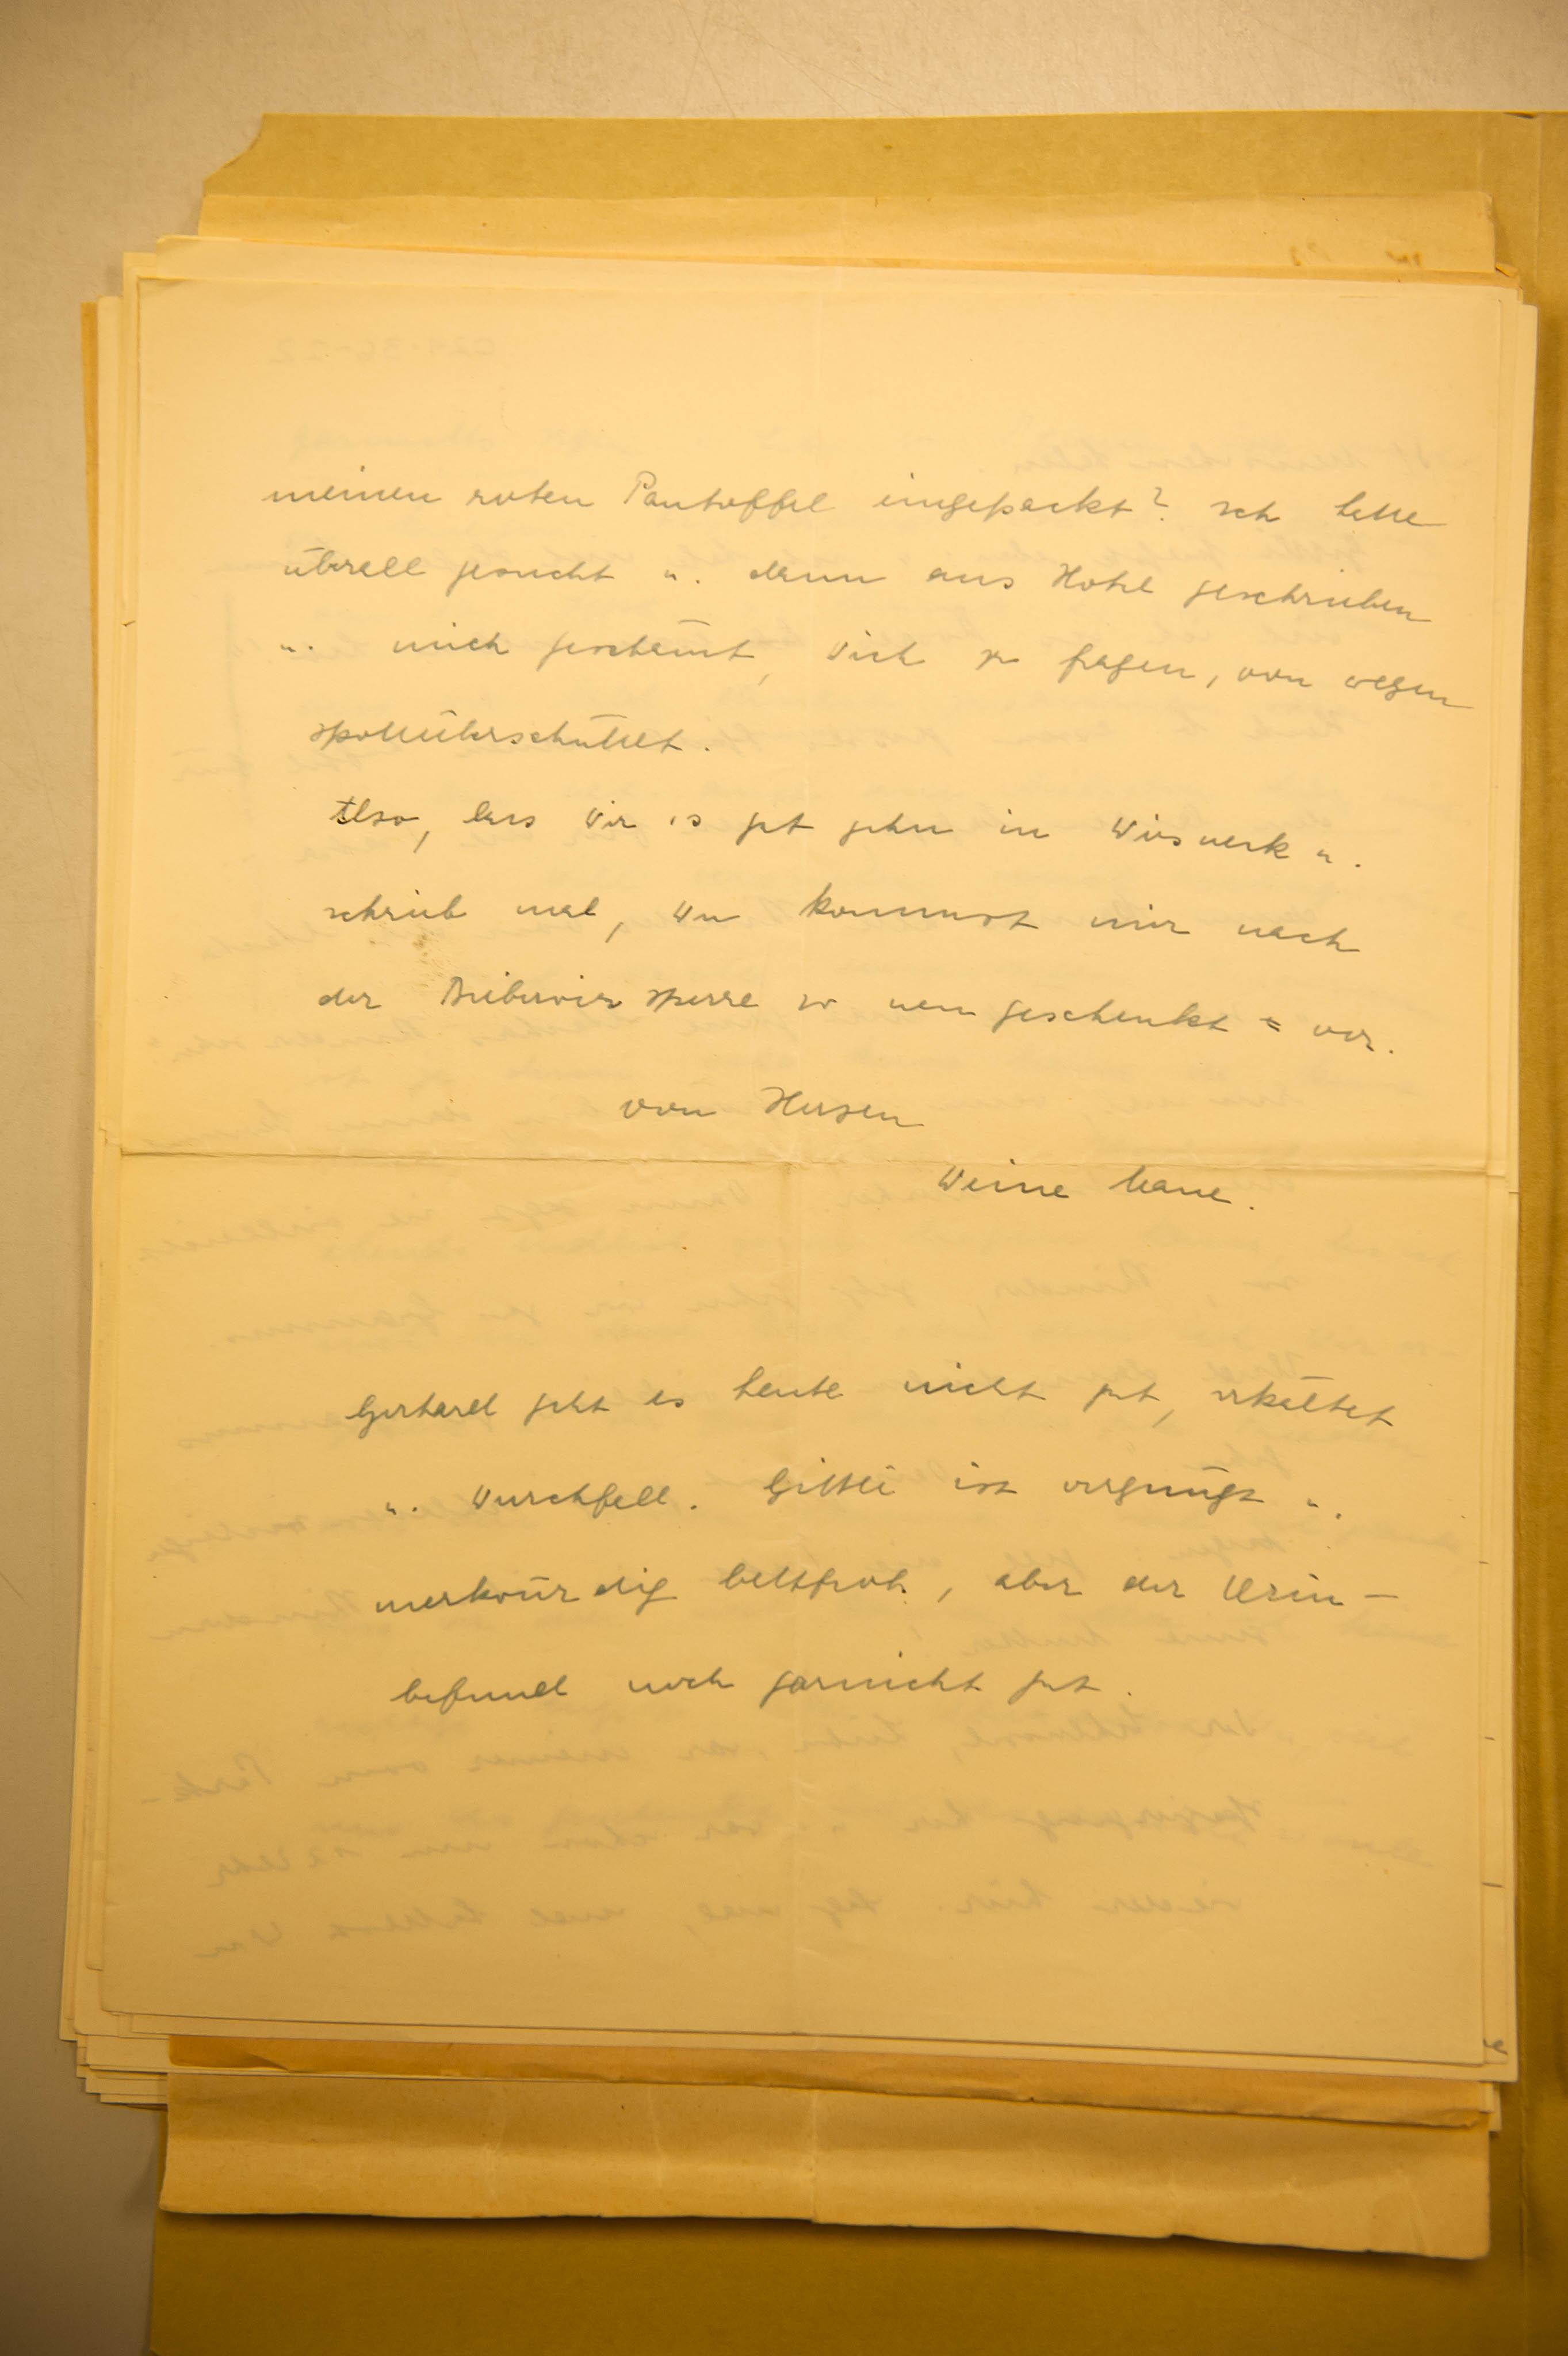 meinen roten Pantoffel eingepackt? Ich hatte
überall gesucht u. dann ans Hotel geschrieben
u. mich geschämt, Dich zu fragen, von wegen
spottüberschüttet.
Also, lass Dir's gut gehn in u.
schreib mal, Du kommst mir nach
der Biberwier sperre so neu geschenkt = vor.
von Herzen
Deine Hane.
Gerhard geht es heute nicht gut, erkältet
u. Durchfall. Gitti ist vergnügt u.
merkwürdig bettfroh, aber der Urin-
befund noch garnicht gut.